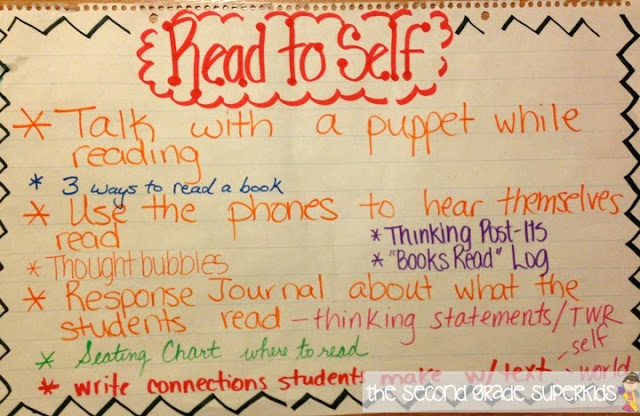 Read to Self
* Talk with a puppet while
reading
* 3 ways to read a book
* Use the phones to hear themselves
read
* Thinking Post-Its
* Thought bubbles
* "Books Read" Log
* Response Journal about what the
students read - thinking statements/TWR
* Seating Chart where to read
self
* write connections students make w/text
world
the second grade superkids